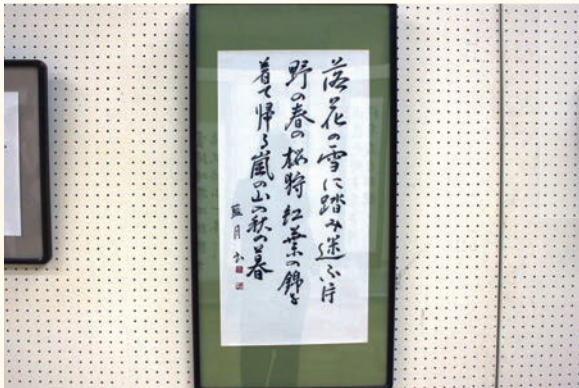 落花の雪に踏み迷ふ片
野の春の桜狩紅葉の錦を
着て帰る嵐の山の秋の暮
藍月書